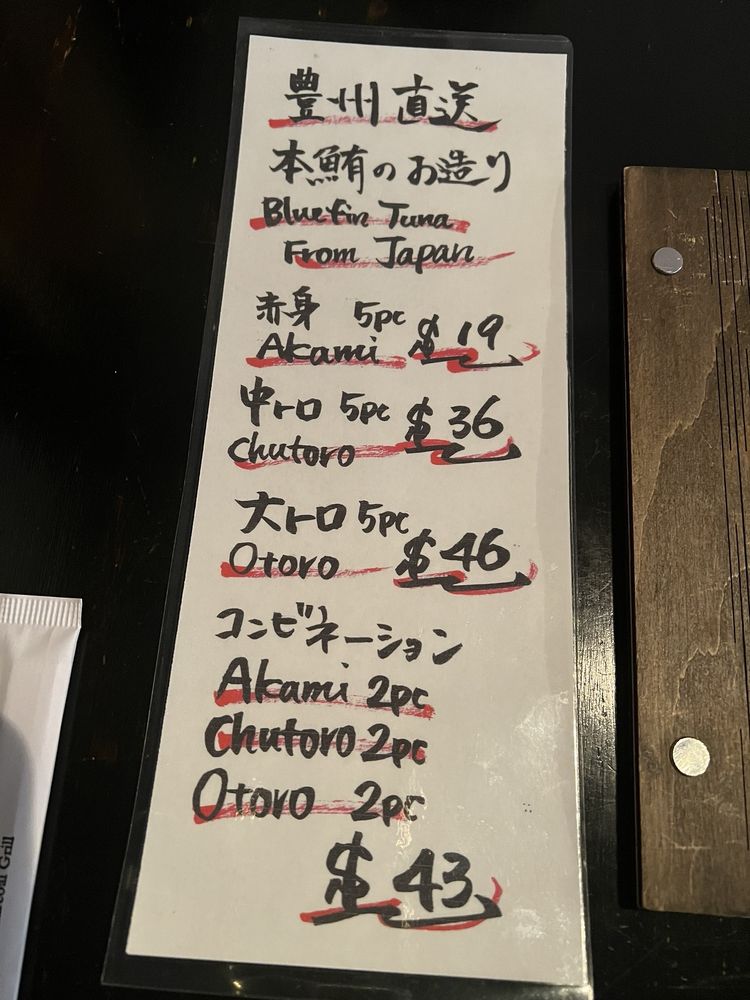 豊州直送
本鮪のお造り
Bluefin Tuna
From Japan
赤身 5pc
Akami $19
中トロ 5pc
Chutoro $36
大トロ 5pc
Otoro $46
コンビネーション
Akami 2pc
Chutoro 2pc
Otoro 2pc
$43
Grill